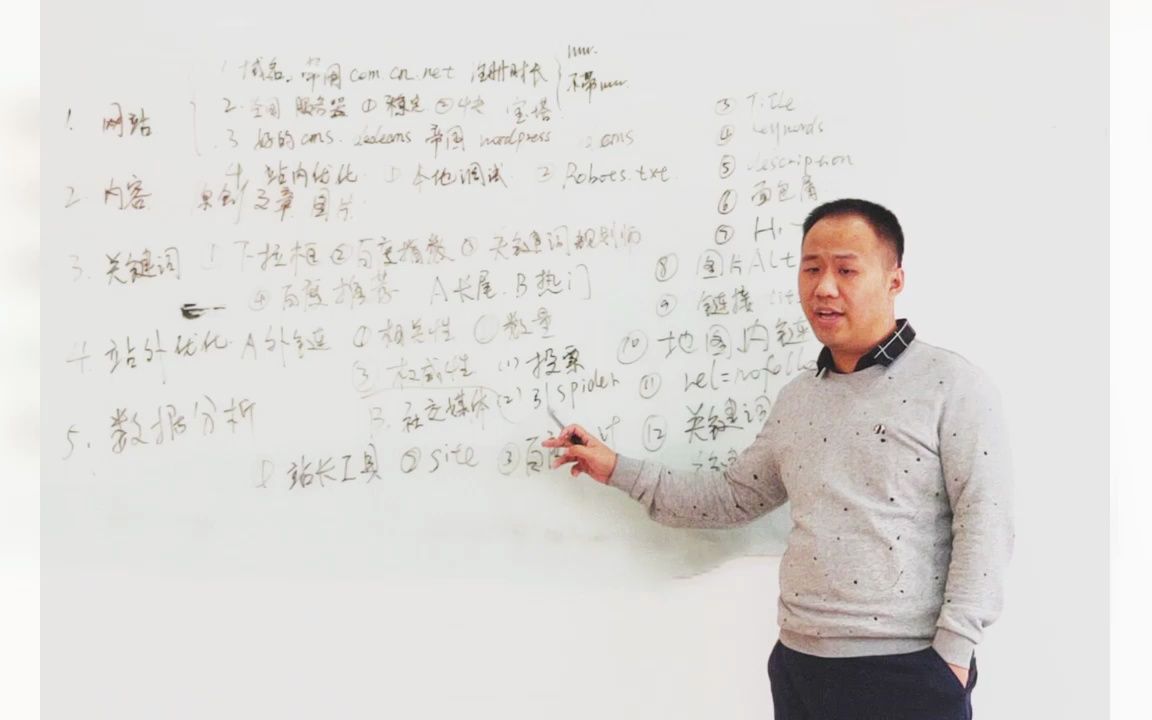 1. 网站
1 域名、常用 com cn.net 注册时长
不带www.
2. 全国 服务器 ① 稳定 ② 快 宝塔
3 好的cms. dedecms 帝国 wordpress cms
4 站内优化. ① 本地调试 ② Robots.txt.
2. 内容 原创 文章 图片.
3. 关键词 ① 下拉框 ② 百度指数 ③ 关键词规划师
④ 百度推荐 A长尾. B热门
4 站外优化. A外链 ① 相关性 ② 数量
③ 权威性 (1) 投票
B. 社交媒体 (2) 引spider
5. 数据分析
① 站长工具 ② site ③ 百
③ Title
④ keywords
⑤ description
⑥ 面包屑
⑦ H1
⑧ 图片Alt
⑨ 链接
⑩ 地图内链
⑪ rel=nofollow
⑫ 关键词